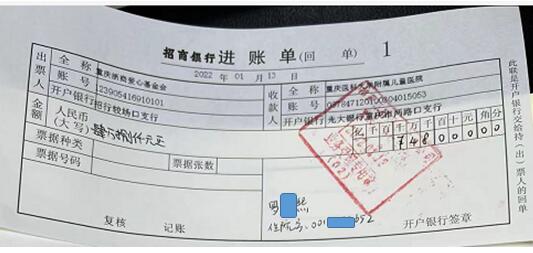 招商银行进账单(回 单) 1
2022 年 01 月 13 日
出票人
全 称 重庆浙商爱心基金会
账 号 123905416910101
开户银行 招行较场口支行
收款人
全 称 重庆医科大学附属儿童医院
账 号
开户银行 光大银行重庆市两路口支行
金额
人民币
(大写)
亿 千 百 十 万 千 百 十 元 角 分
¥ 4 8 0 0 0 0 0
票据种类
票据张数
票据号码
复核 记账
开户银行签章
住院号:
此联是开户银行交给持(出)票人的回单